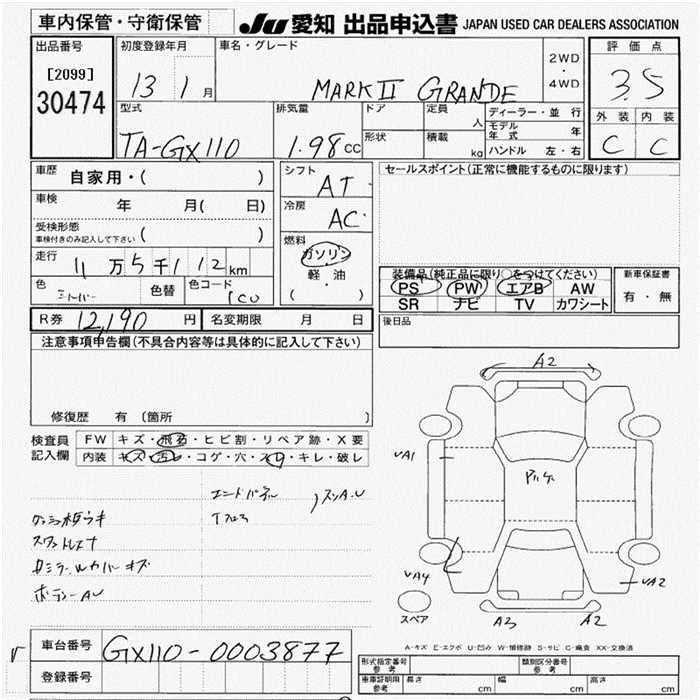 車内保管・守衛保管 JU 愛知 出品申込書 JAPAN USED CAR DEALERS ASSOCIATION
出品番号 初度登録年月 車名・グレード 2WD ・ 4WD 評価点
[2099]
30474 13 1月 MARK II GRANDE 3.5
型式 排気量 ドア 定員 人 ディーラー・並 行 外装 内装
モデル年式 年
TA-GX110 1.98 CC 形状 積載 kg ハンドル 左・右 C C
車歴 自家用・( ) シフト AT セールスポイント(正常に機能するものに限ります)
車検 年 月( 日) 冷房 AC
受検形態 車検付きのみ記入して下さい ( )
燃料 ガソリン
走行 11万5千112km 軽 油 装備品(純正品に限り○をつけてください) 新車保証書
色 シルバー 色替 色コード 1C0 ( ) PS PW エアB AW 有・無
SR ナビ TV カワシート
R券 12,190 円 名変期限 月 日 後日品
注意事項申告欄(不具合内容等は具体的に記入して下さい)
修復歴 有 (箇所
A2
検査員記入欄 FW キズ・飛石・ヒビ割・リペア跡・X要
内装 キズ・汚レ・コゲ・穴・スレ・キレ・破レ
UA1
スソA.U
UA4 UA2
ボデーAU
スペア A3 A2
車台番号 GX110-0003877
A-キズ E-エクボ U-凹み W-補修跡 S-サビ C-腐食 XX-交換済
登録番号 形式指定番号 参考 類別区分番号 参考
車庫証明用 参考 長さ cm 幅 cm 高さ cm